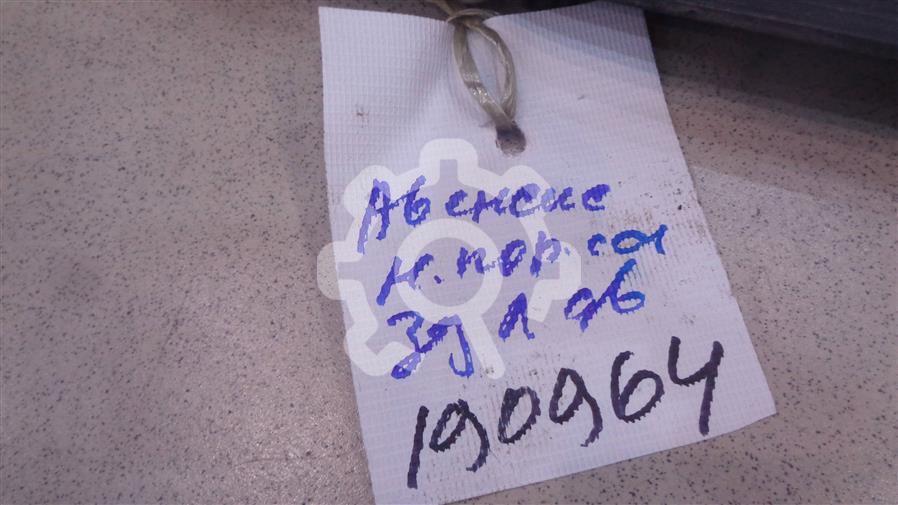 Авенсис
н.пор.сол
зд л дв
190964